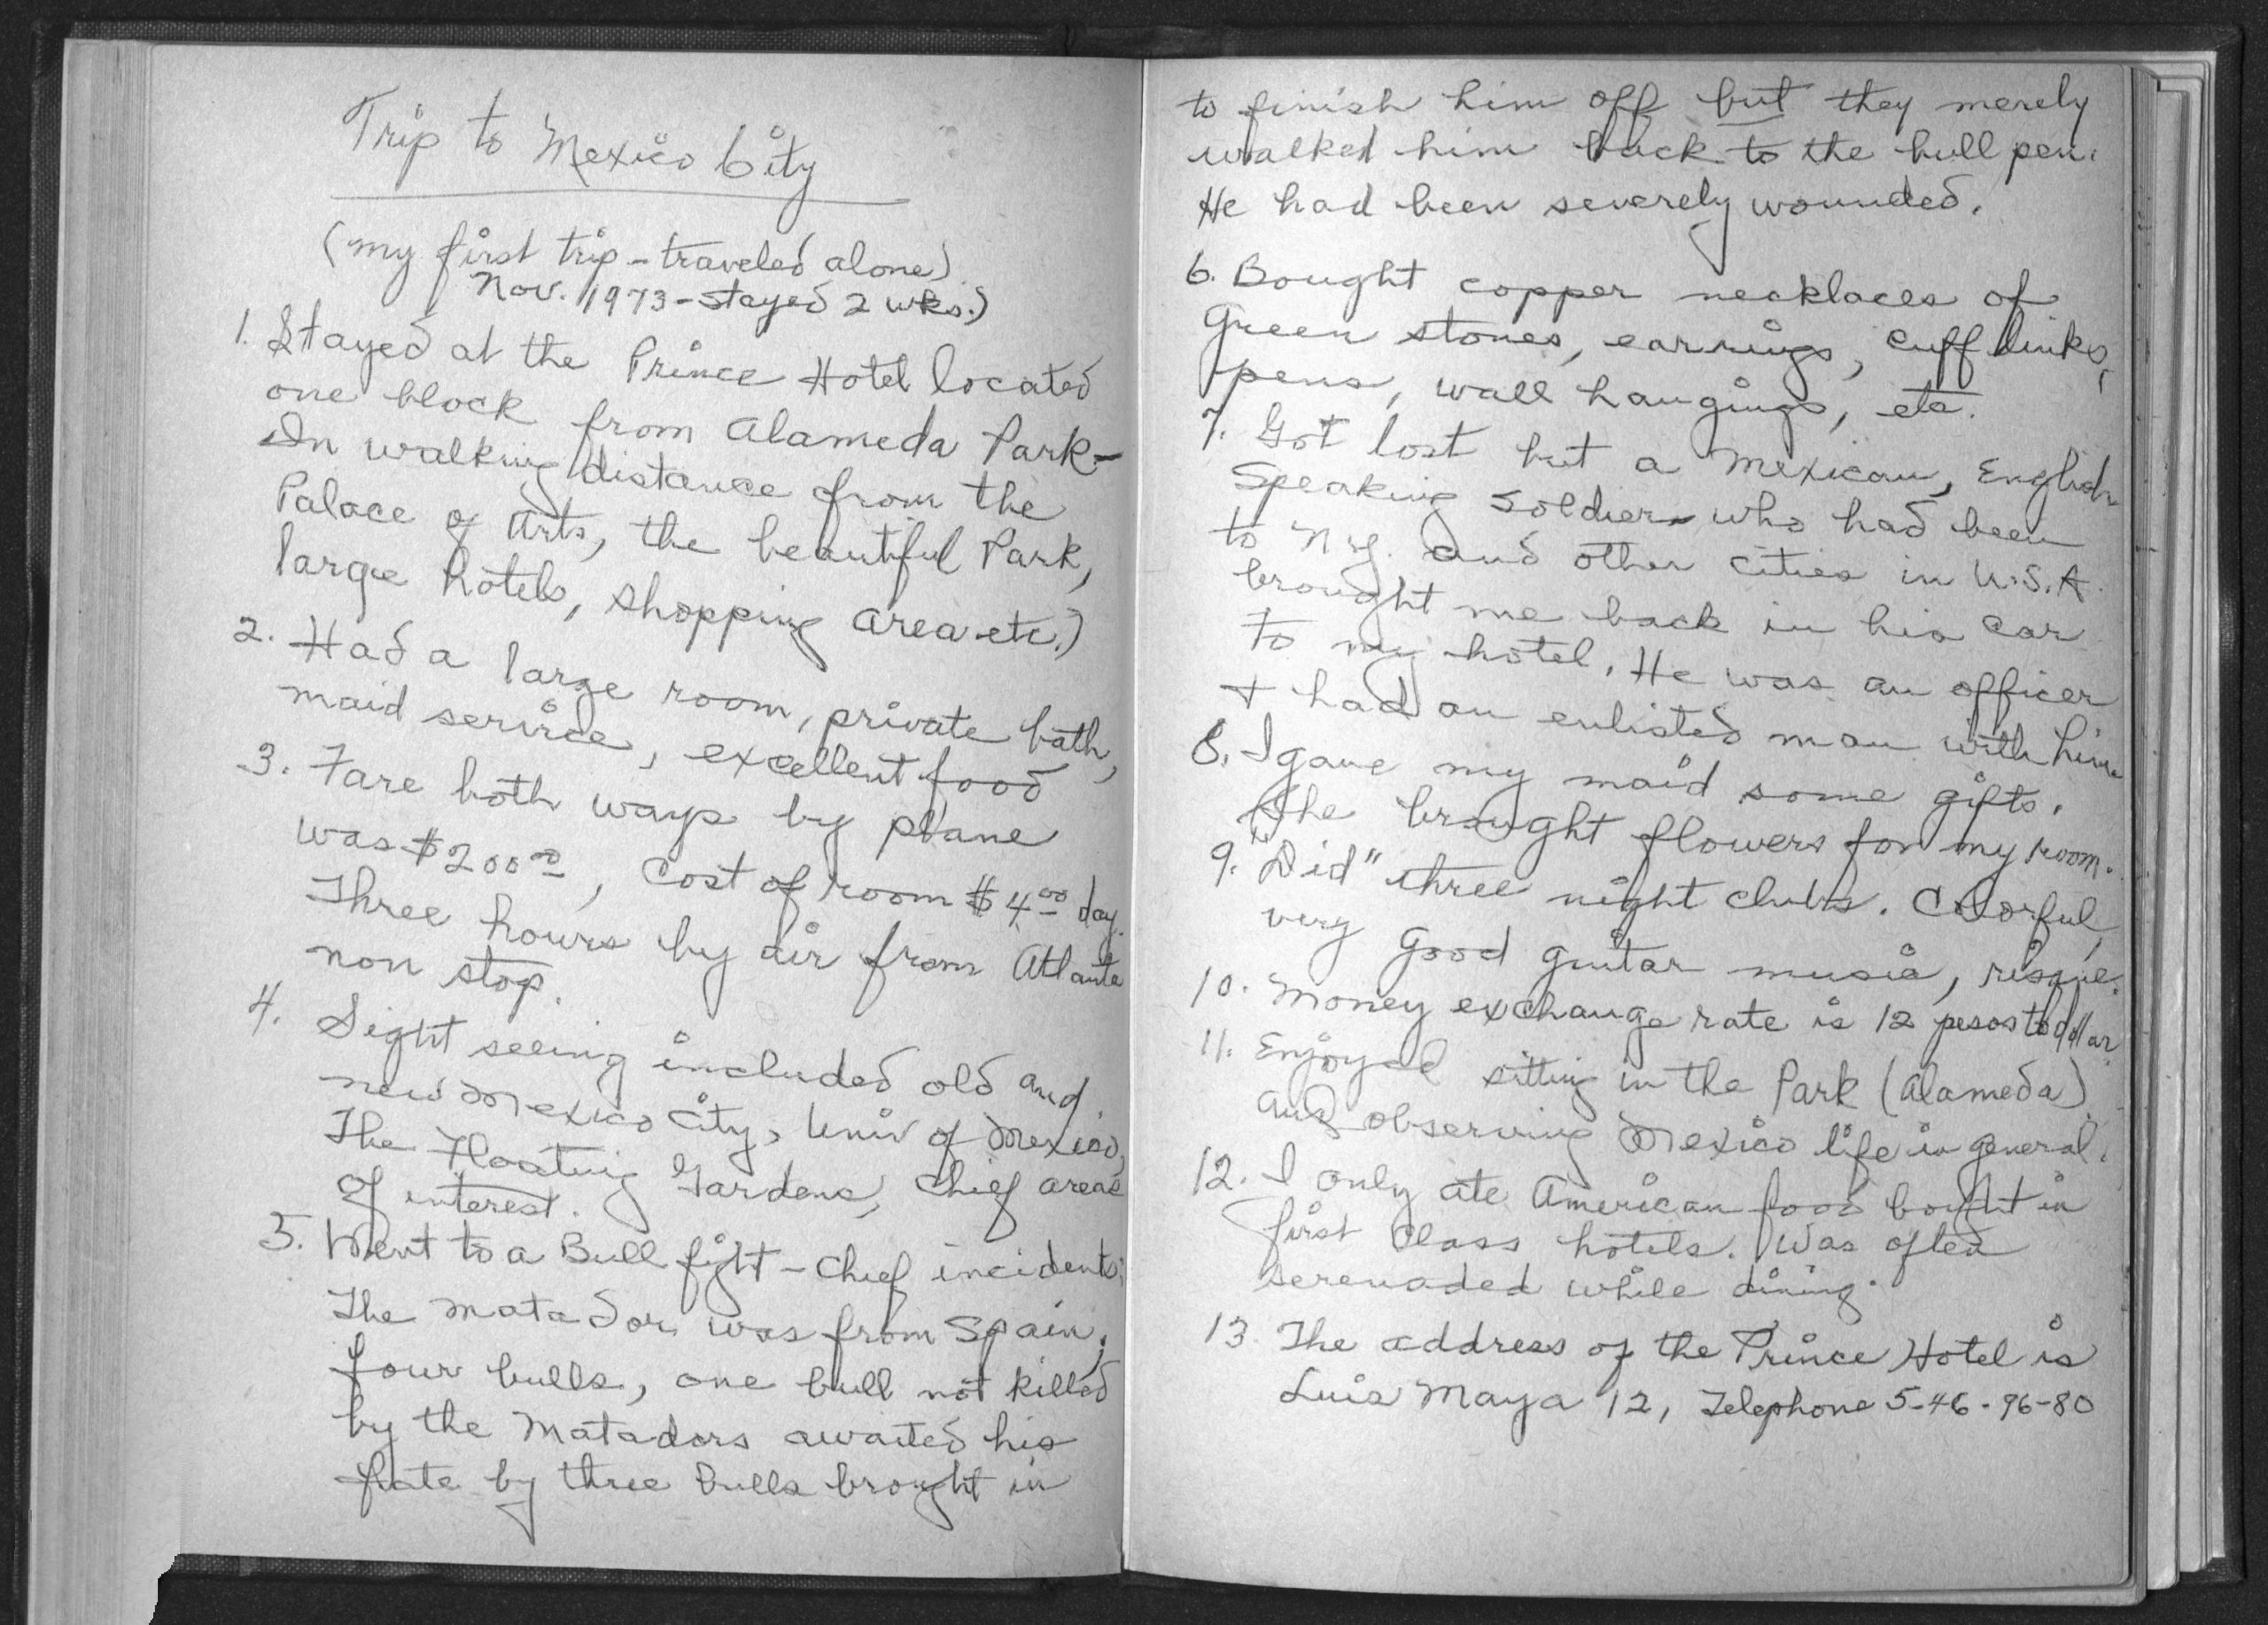 Trip to Mexico City
(my first trip - traveled alone)
Nov. 1973 - stayed 2 wks.)
1. Stayed at the Prince Hotel located
one block from Alameda Park -
In walking distance from the
Palace of Arts, the beautiful Park,
large hotels, shopping area etc.)
2. Had a large room, private bath,
maid service, excellent food
3. Fare both ways by plane
was $200.00, Cost of room $4.00 day.
Three hours by air from Atlanta
non stop.
4. Sight seeing included old and
new Mexico City, Univ of Mexico,
The Floating Gardens, Chief areas
of interest.
5. Went to a Bull fight - Chief incidents:
The Matador was from Spain;
four bulls, one bull not killed
by the Matadors awaited his
fate by three bulls brought in
to finish him off but they merely
walked him back to the bull pen.
He had been severely wounded.
6. Bought copper necklaces of
Green stones, earrings, cuff links,
pens, wall hangings, etc.
7. Got lost but a Mexican, English
Speaking Soldier - who had been
to N.Y. and other cities in U.S.A.
brought me back in his car
to my hotel. He was an officer
+ had an enlisted man with him.
8. I gave my maid some gifts.
She brought flowers for my room.
9. "Did" three night clubs. Colorful,
very good guitar music, risque.
10. Money exchange rate is 12 pesos to dollar
11. Enjoyed sitting in the Park (Alameda)
and observing Mexico life in general.
12. I only ate American food bought in
first class hotels. Was often
serenaded while dining.
13. The address of the Prince Hotel is
Luis Maya 12, Telephone 5-46-96-80